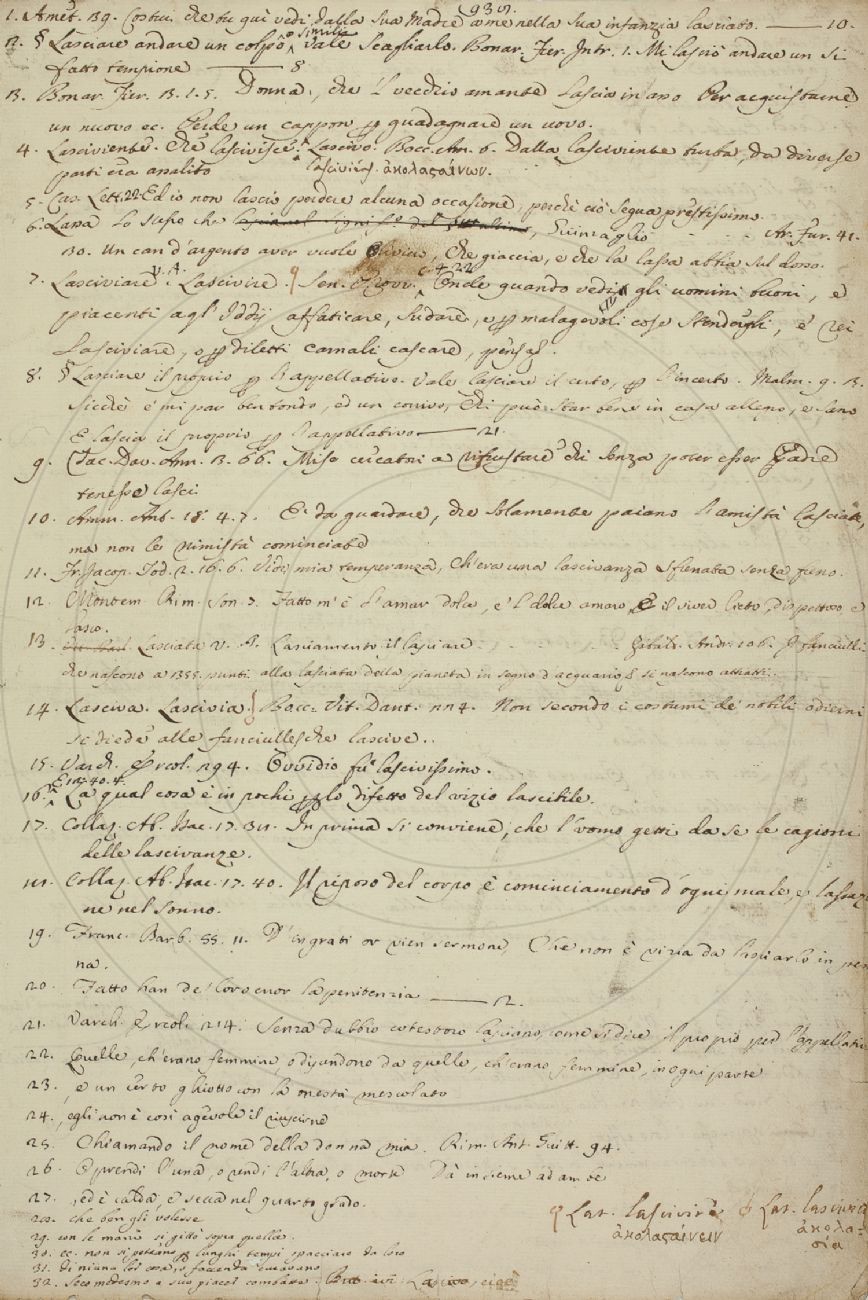 930.
1. Amet. 39. Costui, che tu quì vedi, dalla sua Madre a me nella sua infanzia lasciato. —— 10.
2. § Lasciare andare un colpo, o simile vale Scagliarlo. Bonar. Fier. Intr. 1. Mi lasciò andare un sì
fatto tempione —— 8
3. Bonar. Fier. 3. 1. 5. Donna, che 'l vecchio amante lascia in aso Per acquistarne
un nuovo ec. Perde un cappon, per guadagnare un uovo.
4. Lasciviente. Che lascivisce. Lascivo. Bocc. Am. 6. Dalla lasciviente turba, da diverse
parti era assalito lasciviens. ἀκολασαίνων.
5. Cas. Lett. 22. Ed io non lascio perdere alcuna occasione, perchè ciò segua prestissimo.
6. Lassa Lo stesso che , Guinzaglio. Ar. Fur. 41.
30. Un can d'argento aver vuole Olivieri, Che giaccia, e che la lassa abbia sul dosso.
7. Lasciviare. V. A. Lascivire. Sen. Provi. c. 422 Onde quando vedi gli uomini buoni, e
piacenti agl' Iddij affaticare, sudare, e per malagevoli cose , e' rei
lasciviare, e per diletti carnali cascare,
8. § Lasciare il proprio per l'appellativo. Vale lasciare il certo, per l'incerto. Malm. 9. 3.
Sicchè e' mi par ben tondo, ed un corrivo, Chi può star bene in casa allegro, e sano
E lascia il proprio per l'appellativo —— 21.
9. Tac. Dav. Ann. 3. 66. Mise cercatori a rifrustare chi senza poter esser Padre
tenesse lasci.
10. Amm. Ant. 18. 4. 7. E' da guardare, che solamente paiano l'amistà lasciate,
ma non le nimistà cominciate
11. Fr. Jacop. Tod. 2. 16. 6. Vidi mia temperanza, Ch'era una lascivanza sfrenata senza freno.
12. Montem. Rim. Son. 7. Fatto m'è l'amar dolce, e 'l dolce amaro, E il viver lieto, dispettoso e
lasso.
13. Lasciata V. A. Lasciamento il lasciare Zibald. Andr. 106. I fanciulli
che nascono a 1355. punti alla lasciata della pianeta in segno d'acquario, si nascono attratti.
14. Lasciva. Lascivia. Bocc. Vit. Dant. 224. Non secondo i costumi de' nobili odierni
si diede alle fanciullesche lascive.
15. Varch. Ercol. 294. Ovvidio fu lascivissimo.
E 18. 40. 4.
16. La qual cosa è in pochi per lo difetto del vizio lascibile.
17. Collaz. Ab. Isac. 17. 38. In prima si conviene, che l'uomo getti da se le cagioni
delle lascivanze.
18. Collaz. Ab. Isac. 17. 40. Il riposo del corpo è cominciamento d'ogni male, e lassazio
ne nel sonno.
19. Franc. Barb. 55. 11. D'ingrati or vien sermone, Che non è vizia da lasciarlo in pen
na.
20. Fatto han de' loro error la penitenzia —— 12.
21. Varch. Ercol. 214. Senza dubbio cotestoro lasciano, come si dice il proprio per l'appellativo
22. Quelle, ch'erano femmine, o discendono da quelle, ch'erano femmine, in ogni parte
23. , e un certo ghiotto con la onestà mescolato
24. , egli non è così agevole il riuscirne
25. Chiamando il nome della donna mia. Rim. Ant. Guitt. 94.
26. E prendi l'una, o rendi l'altra, o morte Dà insieme ad ambe
27. , ed è calda, e secca nel quarto grado.
28. che ben gli volesse
29. con le mani si gittò sopra quella.
30. ec. non si poteano per lunghi tempi spacciare da loro
31. di niuna lor cosa, o faccenda curavano
32. Seco medesmo a suo piacer combatte: But. ivi: Lascivo, cioè
Lat. lascivire
ἀκολασαίνειν
Lat. lascivia
ἀκολα-
σία